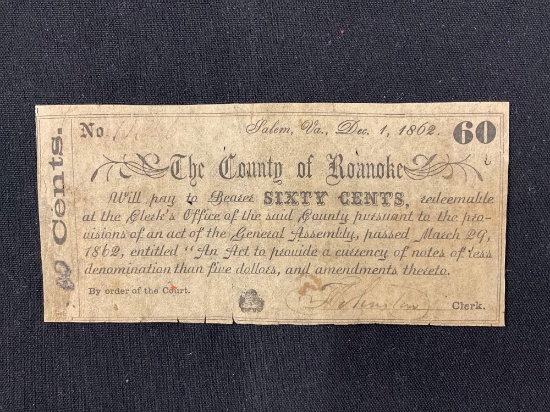 No.
Salem, Va., Dec. 1, 1862.
60
The County of Roanoke
Will pay to Bearer SIXTY CENTS, redeemable
at the Clerk's Office of the said County pursuant to the pro-
visions of an act of the General Assembly, passed March 29,
1862, entitled "An Act to provide a currency of notes of less
denomination than five dollars, and amendments thereto.
By order of the Court.
Clerk.
Cents.